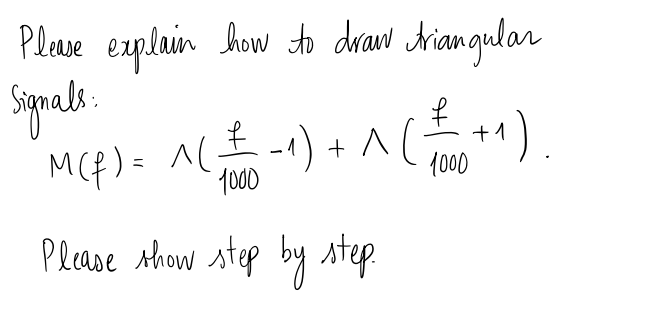 Please explain how to draw triangular
Signals:
M(f) = Λ(f/1000 -1) + Λ(f/1000 +1).
Please show step by step.